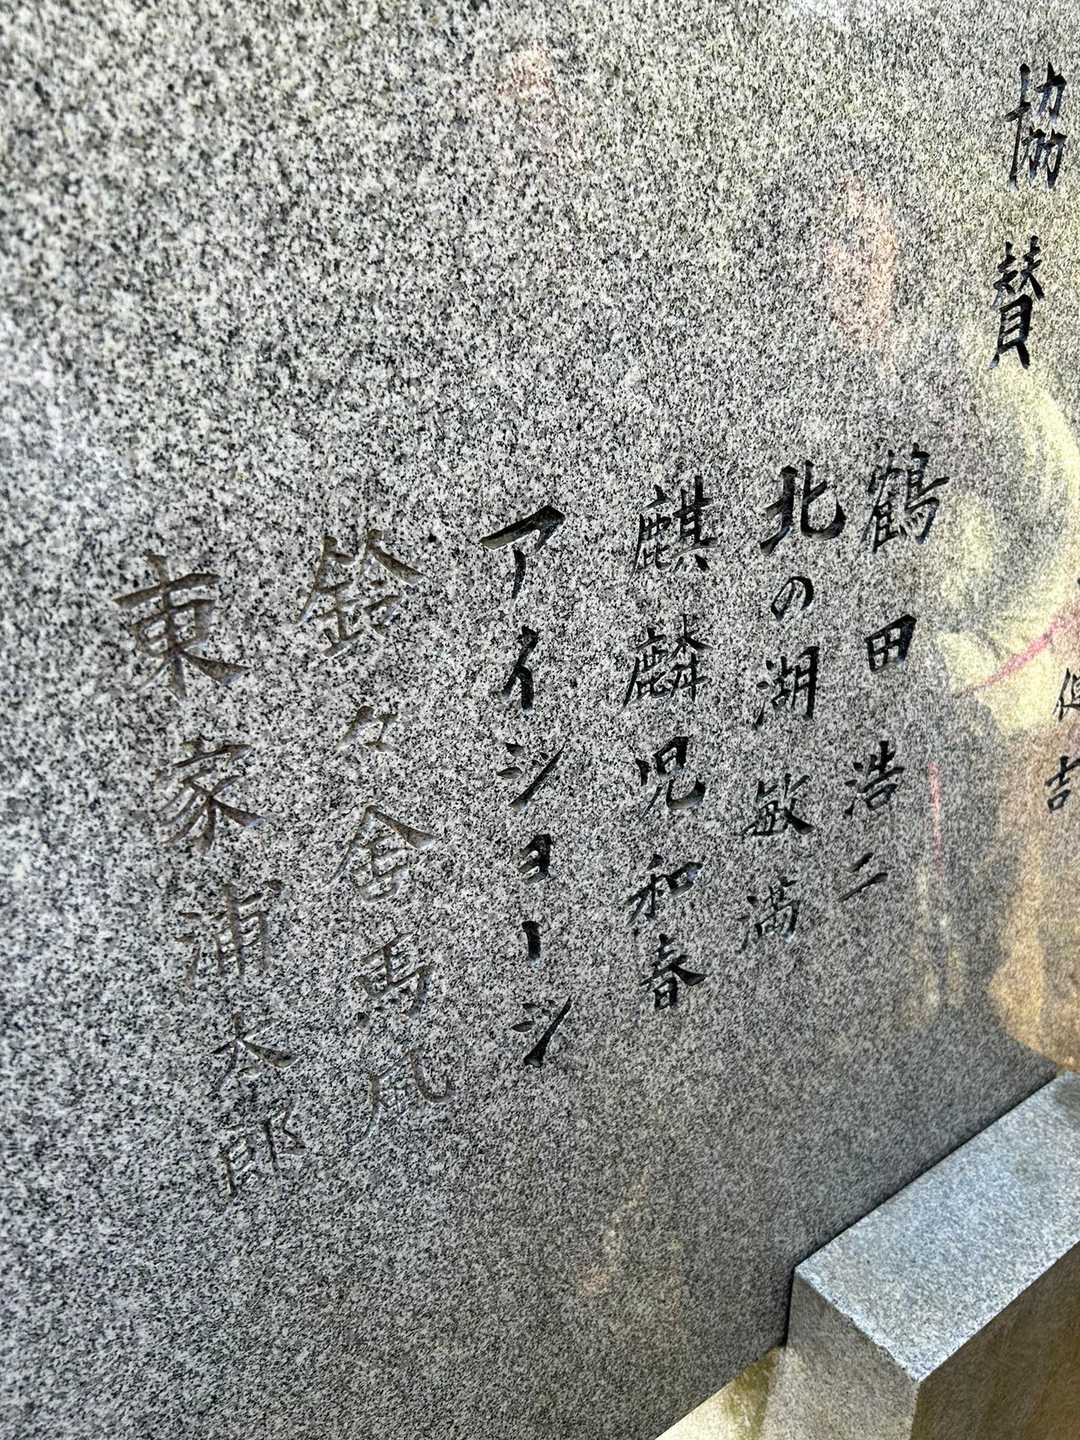 協賛
鶴田浩二
北の湖敏満
麒麟児和春
アイジョージ
鈴々舎馬風
東家浦太郎